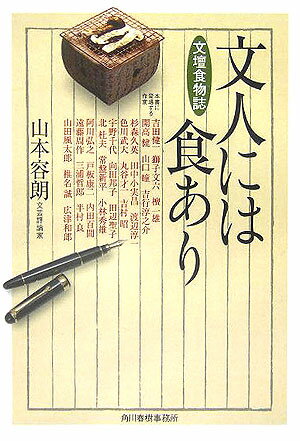 文人には
食あり
文壇食物誌
本書に
登場する
作家
吉田健一 獅子文六 檀一雄
開高健 山口瞳 吉行淳之介
杉森久英 田中小実昌 渡辺淳一
色川武大 丸谷才一 吉村昭
宇野千代 向田邦子 田辺聖子
北杜夫 常盤新平 小林秀雄
阿川弘之 戸板康二 内田百閒
遠藤周作 三浦哲郎 半村良
山田風太郎 椎名誠 広津和郎
山本容朗
文芸評論家
角川春樹事務所